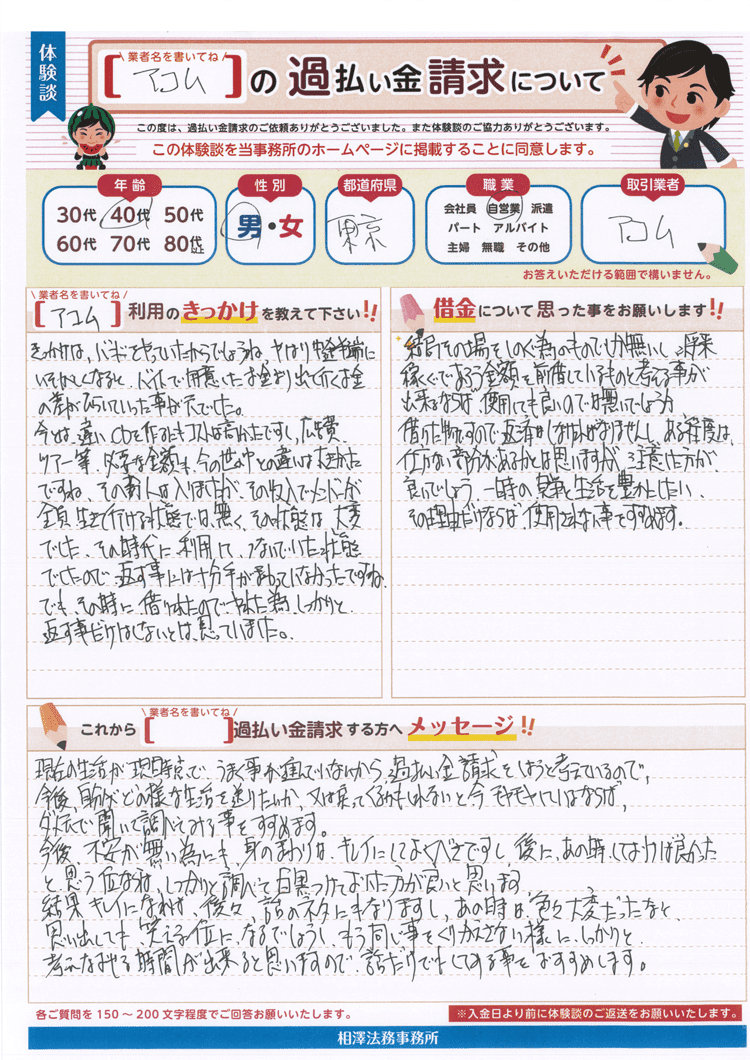 体験談
業者名を書いてね
[アコム]の過払い金請求について
この度は、過払い金請求のご依頼ありがとうございました。また体験談のご協力ありがとうございます。
この体験談を当事務所のホームページに掲載することに同意します。
年齢
30代 40代 50代
60代 70代 80代以上
性別
男・女
都道府県
東京
職業
会社員 自営業 派遣
パート アルバイト
主婦 無職 その他
取引業者
アコム
お答えいただける範囲で構いません。
業者名を書いてね
[アコム]利用のきっかけを教えて下さい!!
きっかけは、バンドをやっていたからでしょうね、やはり
いそがしくなると、バイトで用意したお金より出て行くお金
の差がひらいていった事が元でした。
今とは違いCDを作るにもコストは高かったですし、広告費、
ツアー等、必要な金額も、今の世の中との違いは大きかった
ですね、その収入は入りましたが、その収入でメンバーが
全員生きて行ける状態では無く、その状態は大変
でした。その時代に利用して、つないでいた状態
でしたので、返す事には十分手が まわっていなかったですね
でも、その時に借りれたので やれた為、しっかりと
返す事だけはしないとは、思っていました。
借金について思った事をお願いします!!
結局その場をしのぐ為のものでしか無いし、将来
稼ぐであろう金額を前借しているものと考える事が
出来るならば、使用しても良いのでは無いでしょうか
借りた物ですので返済はしなければなりませんし、ある程度は、
仕方ない部分があるかとは思いますが、注意した方が、
良いでしょう、一時の 生活を豊かにしたい、
その理由だけならば、使用されない事をすすめます。
業者名を書いてね
これから[ ]過払い金請求する方へメッセージ!!
現在の生活が、現時点で、うまく事が進んでいないから、過払い金請求をしようと考えているので、
今後、自分がどの様な生活を送りたいか、又は戻ってくるかもしれないと、今モヤモヤしているならば、
ダメ元で聞いて調べてみる事をすすめます。
今後、不安が無い為にも、身のまわりは、キレイにしておくべきですし、後に、あの時しておけば良かった
と思う位なら、しっかりと調べて白黒つけておいた方が良いと思います
結果キレイになれば、後々、話のネタにもなりますし、あの時は、色々大変だったなと、
思い出しても、笑える位に、なるでしょうし、もう同じ事をくりかえさない様に、しっかりと
考えなおせる時間が出来ると思いますので、話だけでもしてみる事をおすすめします。
各ご質問を150～200文字程度でご回答お願いいたします。
※入金日より前に体験談のご返送をお願いいたします。
相澤法務事務所